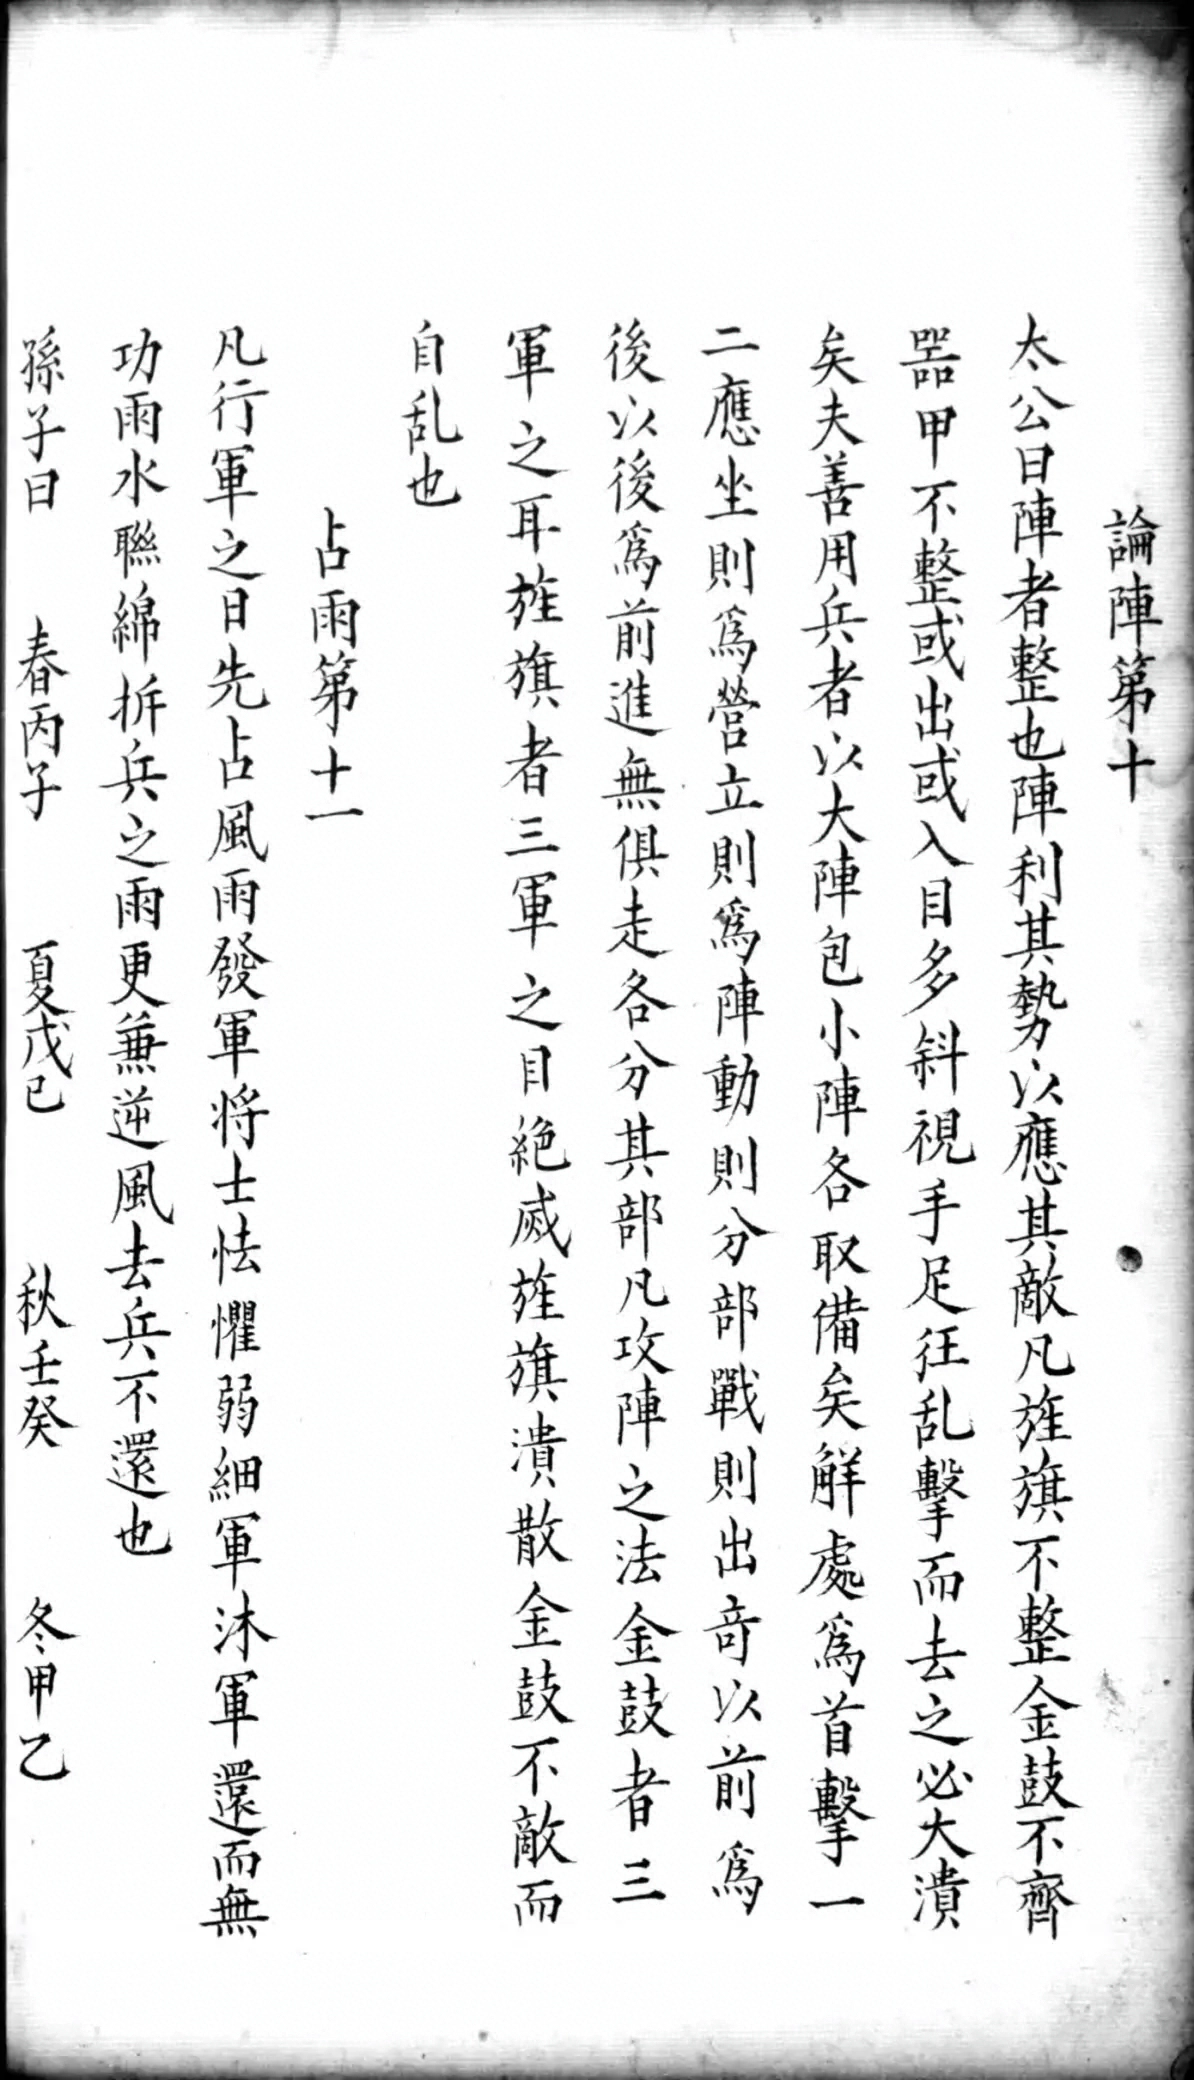 論陣第十
太公曰陣者整也陣利其勢以應其敵凡旌旗不整金鼓不齊
噐甲不整或出或入目多斜視手足彺乱擊而去之必大潰
矣夫善用兵者以大陣包小陣各取備矣觧處爲首擊一
二應坐則爲營立則爲陣動則分部戰則出奇以前爲
後以後爲前進無俱走各分其部凡攻陣之法金鼓者三
軍之耳旌旗者三軍之目絶滅旌旗潰散金鼓不敵而
自乱也
占雨第十一
凡行軍之日先占風雨發軍将士怯懼弱細軍沐軍還而無
功雨水聮綿拆兵之雨更兼逆風去兵不還也
孫子曰 春丙子 夏戊己 秋壬癸 冬甲乙